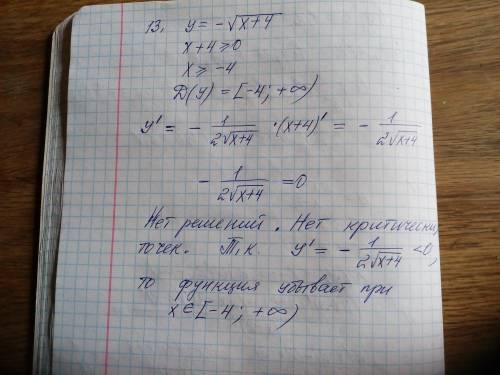 13. y = -√(x+4)
x+4 ≥ 0
x ≥ -4
D(y) = [-4; +∞)
y' = - 1/(2√(x+4)) · (x+4)' = - 1/(2√(x+4))
- 1/(2√(x+4)) = 0
Нет решений. Нет критически
точек. Т.к. y' = - 1/(2√(x+4)) < 0,
то функция убывает при
x ∈ [-4; +∞)